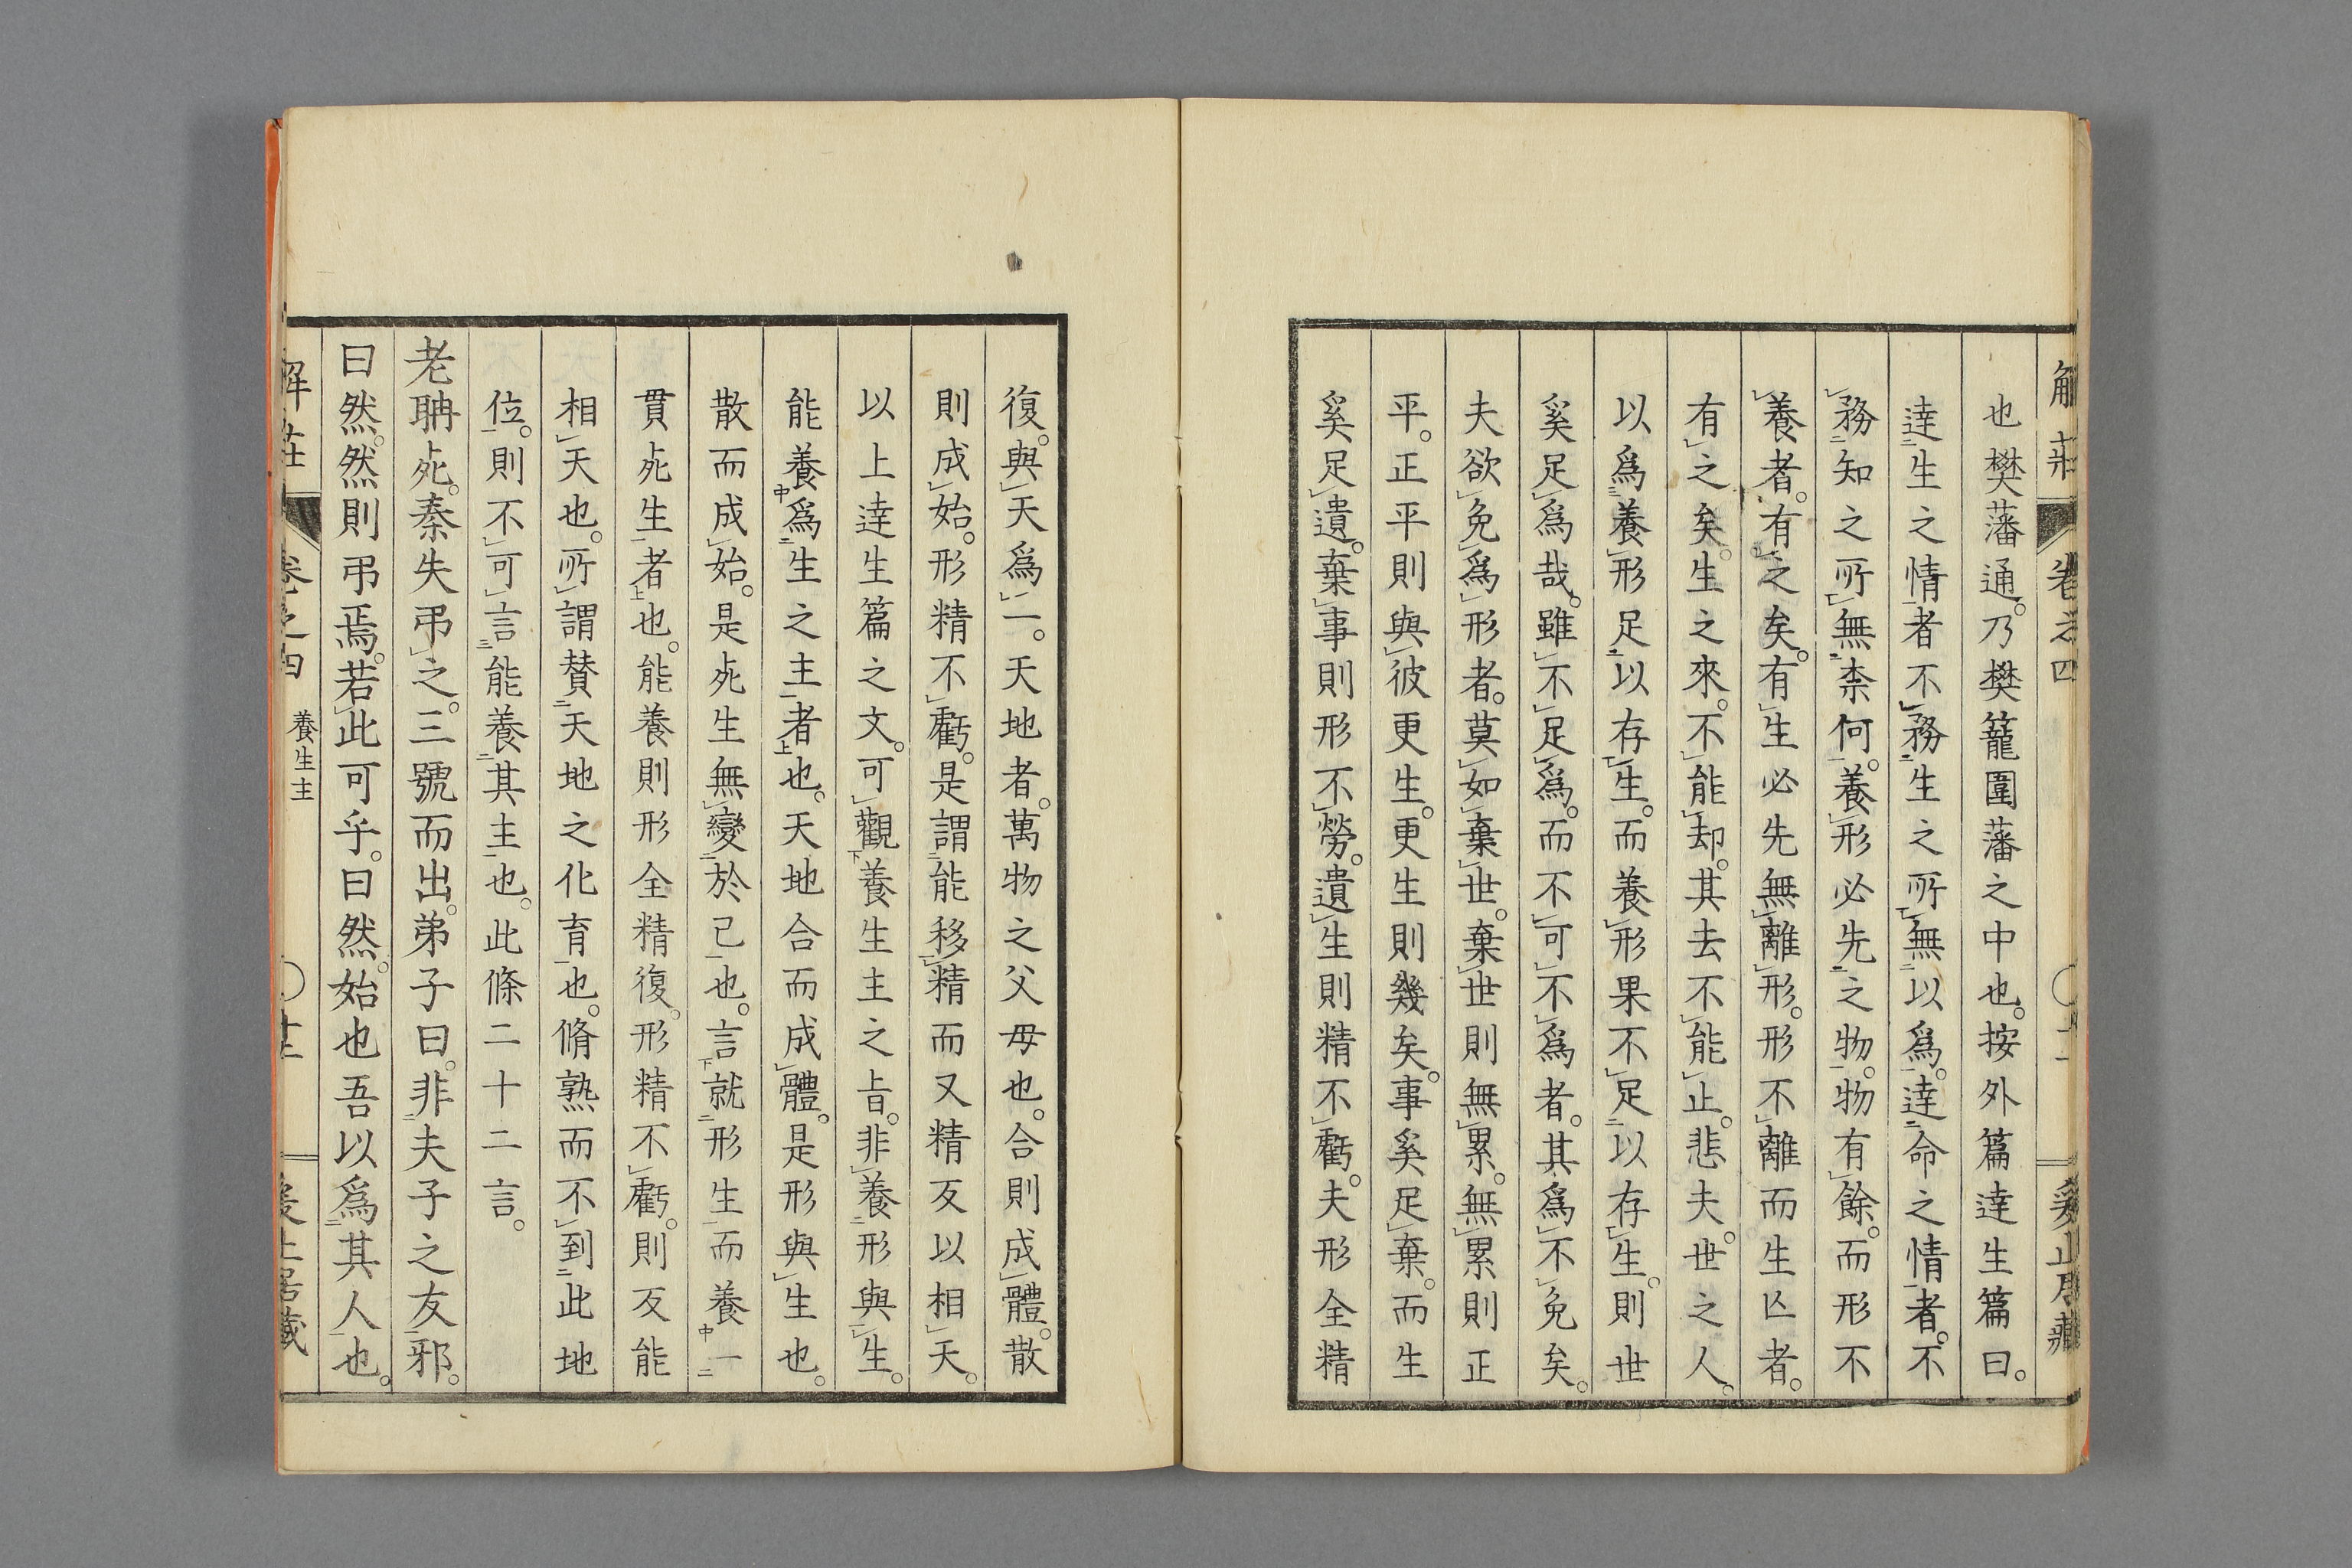 解莊 卷之四
也樊藩通。乃樊籠圍藩之中也。按外篇達生篇曰。
達生之情者不務生之所無以爲。達命之情者。不
務知之所無柰何。養形必先之物。物有餘。而形不
養者。有之矣。有生必先無離形。形不離而生亾者。
有之矣。生之來。不能却。其去不能止。悲夫。世之人。
以爲養形足以存生。而養形果不足以存生。則世
奚足爲哉。雖不足爲。而不可不爲者。其爲不免矣。
夫欲免爲形者。莫如棄世。棄世則無累。無累則正
平。正平則與彼更生。更生則幾矣。事奚足棄。而生
奚足遺。棄事則形不勞。遺生則精不虧。夫形全精
復。與天爲一。天地者。萬物之父母也。合則成體。散
則成始。形精不虧。是謂能移精而又精反以相天。
以上達生篇之文。可觀養生主之旨。非養形與生。
能養爲生之主者也。天地合而成體。是形與生也。
散而成始。是死生無變於己也。言就形生而養一
貫死生者也。能養則形全精復。形精不虧。則反能
相天也。所謂賛天地之化育也。脩熟而不到此地
位。則不可言能養其主也。此條二十二言。
老聃死。秦失弔之。三號而出。弟子曰。非夫子之友邪。
曰然。然則弔焉。若此可乎。曰然。始也吾以爲其人也。
解莊 卷之四 養生主